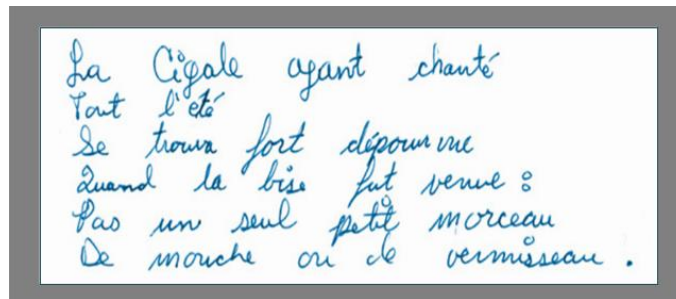 La Cigale ayant chanté
Tout l'été
Se trouva fort dépourvue
Quand la bise fut venue :
Pas un seul petit morceau
De mouche ou de vermisseau.